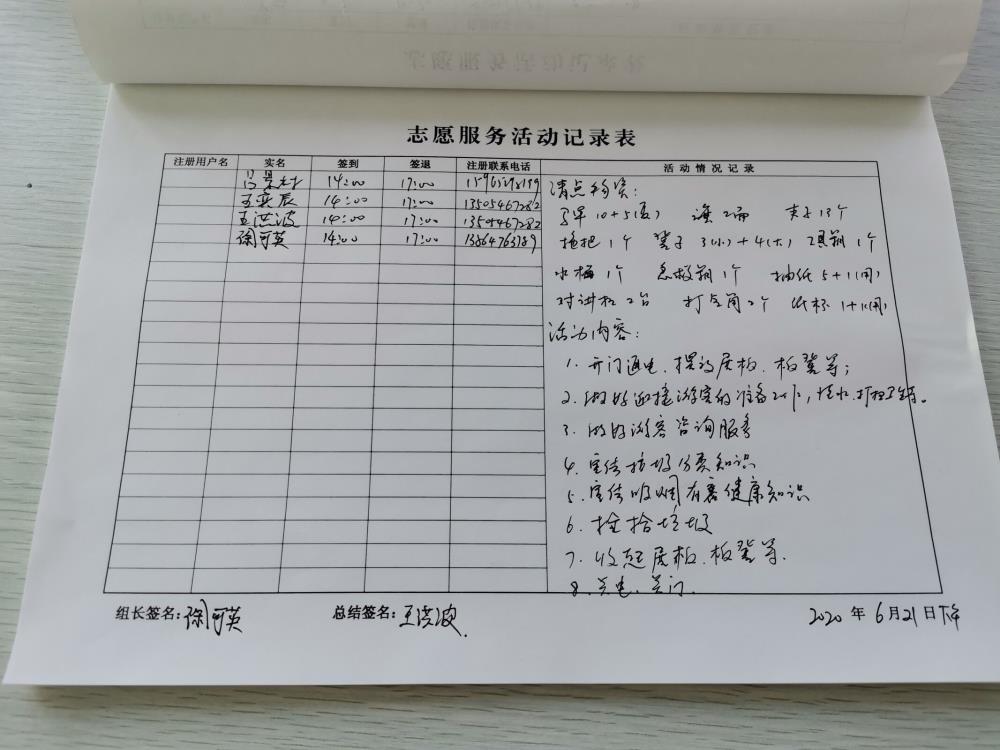 志愿服务活动记录表
注册用户名 实名 签到 签退 注册联系电话 活动情况记录
14:00 17:00
王奕辰 14:00 17:00 13505467282
王洪波 14:00 17:00 13505467282
徐可英 14:00 17:00 13864763789
清点物资:
10+5(夏) 旗2面 夹子13个
拖把1个 凳子3(小)+4(大) 工具箱1个
水桶1个 急救箱1个 抽纸5+1(用)
对讲机2台 打气筒2个 纸杯1+1(用)
活动内容:
1. 开门通电、摆放展板、板凳等;
2. 做好迎接游客的准备工作,烧水、打扫卫生等。
3. 做好游客咨询服务
4. 宣传垃圾分类知识
5. 宣传吸烟有害健康知识
6. 捡拾垃圾
7. 收起展板、板凳等.
8. 关电、关门.
组长签名:徐可英 总结签名:王洪波. 2020年6月21日下午